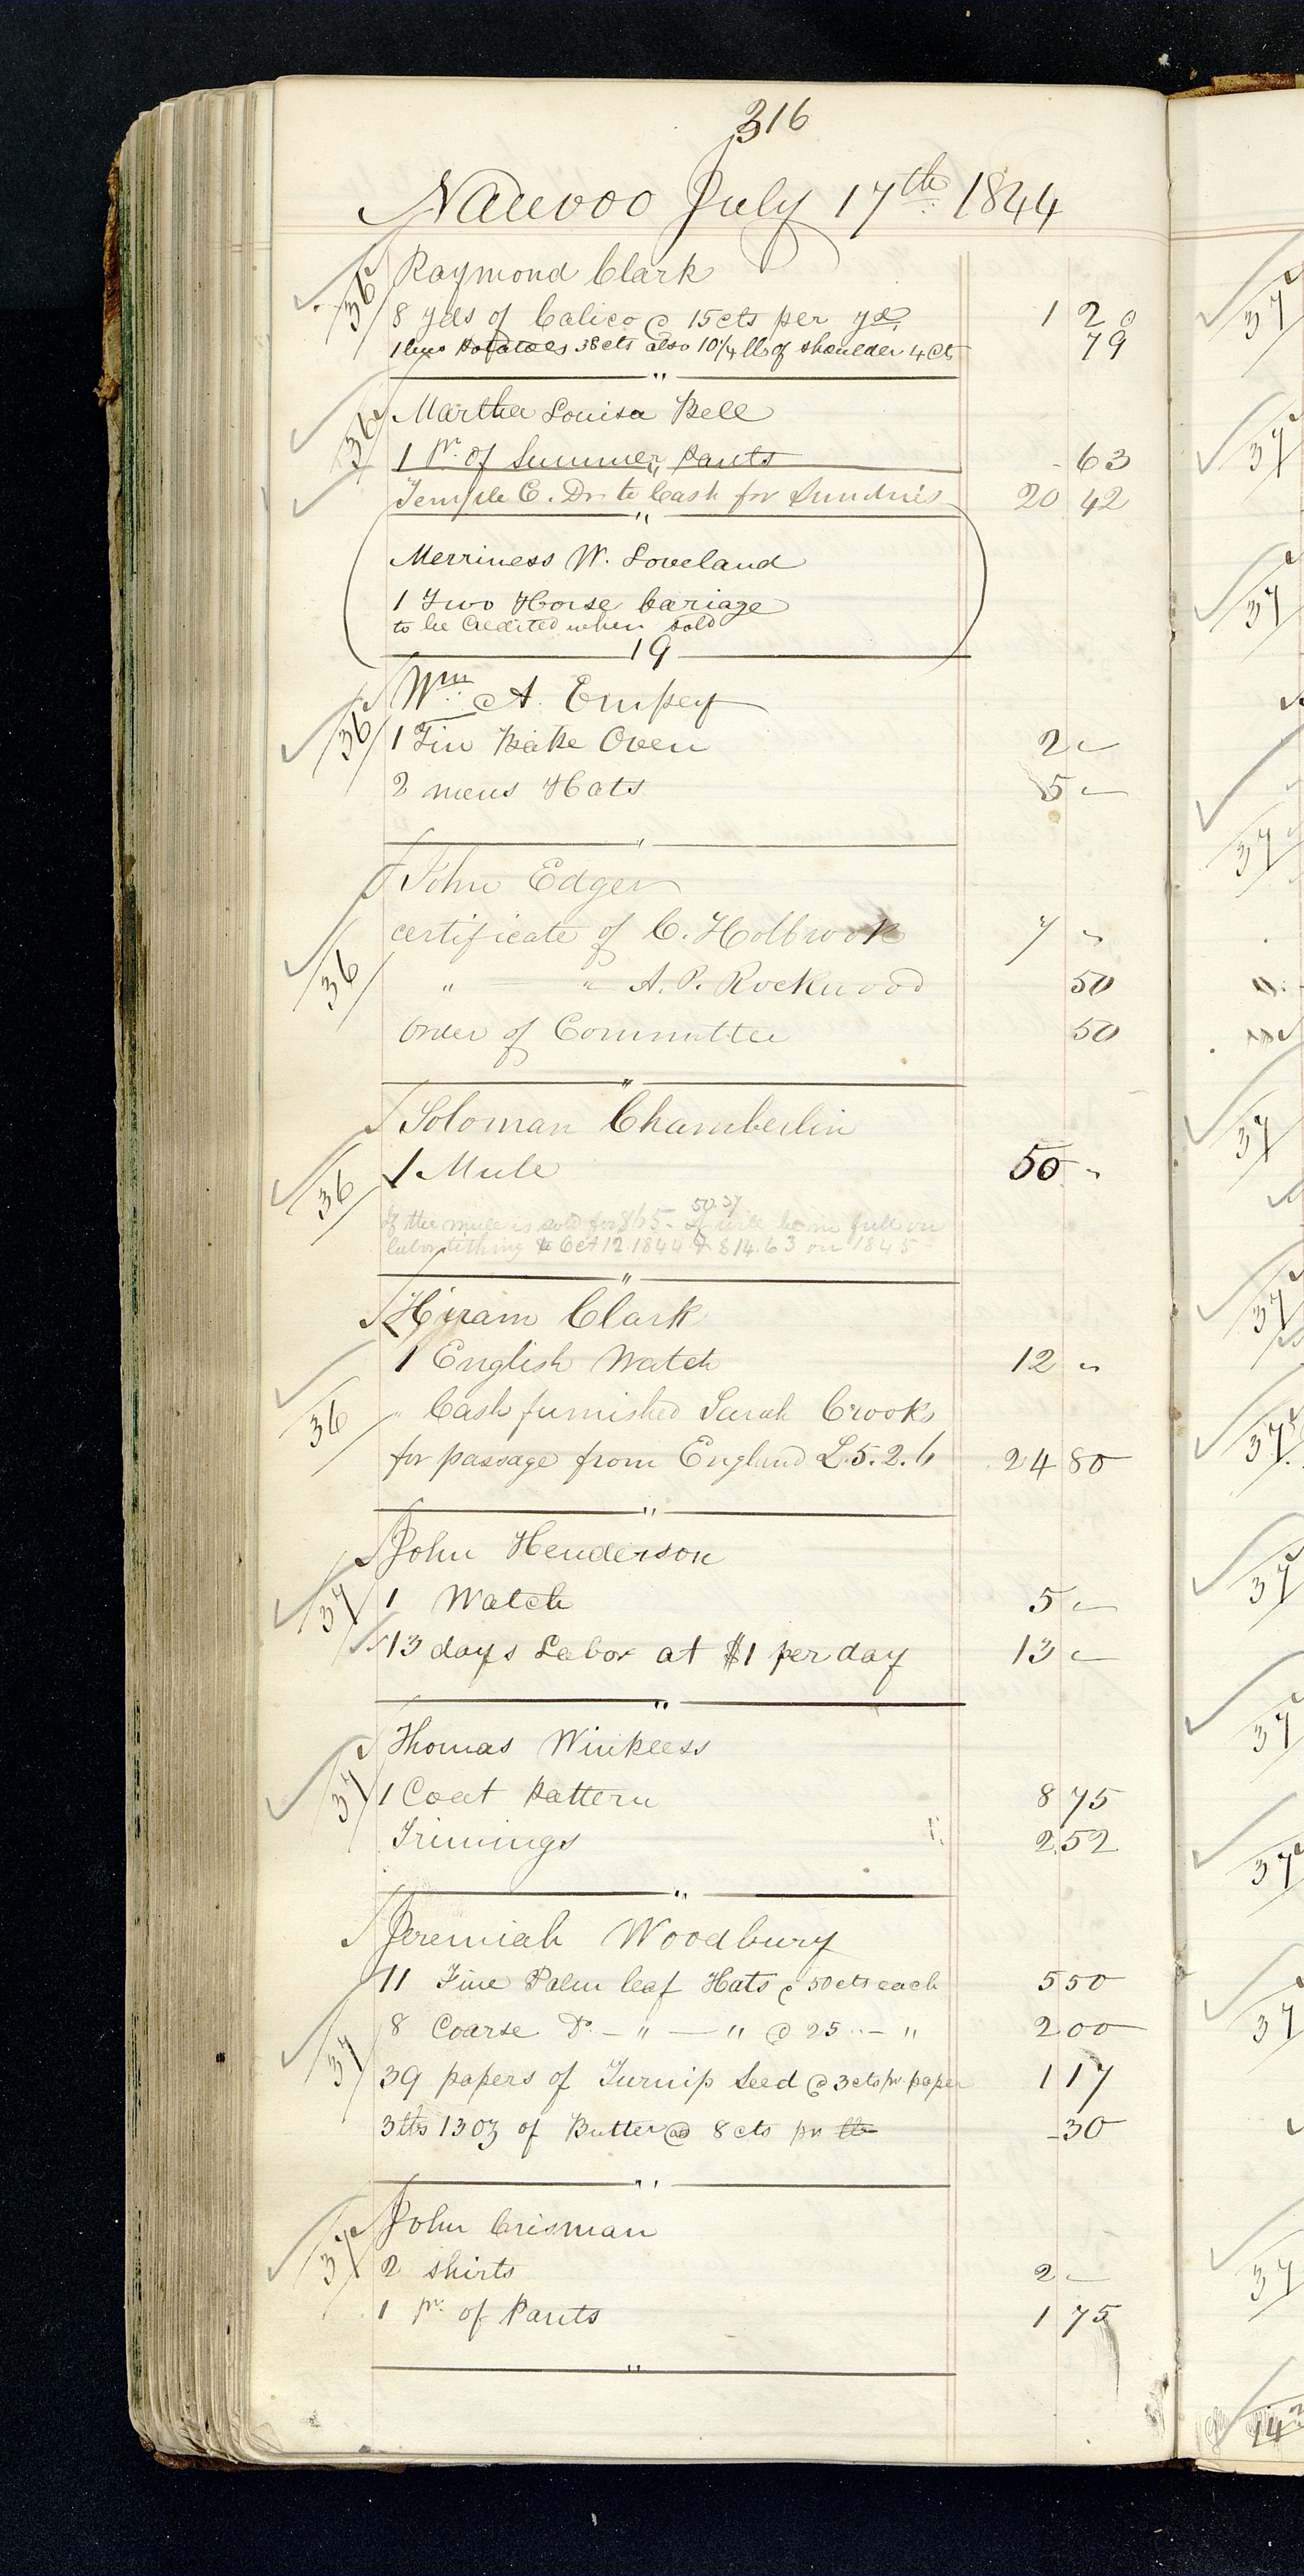 316
Nauvoo July 17th 1844
36 Raymond Clark
8 yds of Calico @ 15cts per yd. 1 20
1 bus Potatoes 38cts also 10¼ lb of shoulder 4 cts 79
"
36 Martha Louisa Bell
1 Pr. of Summer Pants - 63
"
Temple C. Dr to Cash for Sundries 20 42
"
Merriness W. Loveland
1 Two Horse Cariage
to be Credited when sold
19
Wm A. Empey
36 1 Tin Bake Oven 2 -
2 mens Hats 5 -
"
John Edger
certificate of C. Holbrook 7 "
36 " — " A. P. Rockwood 50
Order of Committee 50
"
Soloman Chamberlin
36 1 Mule 50 "
50.37
If the mule is sold for $65- it will be in full on
labor tithing to Oct 12 1844 & $14.63 on 1845-
"
Hiram Clark
1 English Watch 12 "
36 " Cash furnished Sarah Crooks
for passage from England L.5.2.6 24 80
"
John Henderson
37 1 Watch 5 -
13 days Labor at $1 per day 13 -
"
Thomas Winkless
37 1 Coat Pattern 8 75
Trimings 2 52
"
Jeremiah Woodbury
11 Fine Palm leaf Hats @ 50 cts each 5 50
8 Coarse Do. — " — " @ 25 " — " 2 00
37 39 papers of Turnip Seed @ 3 cts pr paper 1 17
3 lbs 13 oz of Butter @ 8 cts pr lb - 30
"
John Crisman
37 2 shirts 2 —
1 pr. of Pants 1 75
"
37
37
37
37
37
37
37
37
37
37
37
37
14